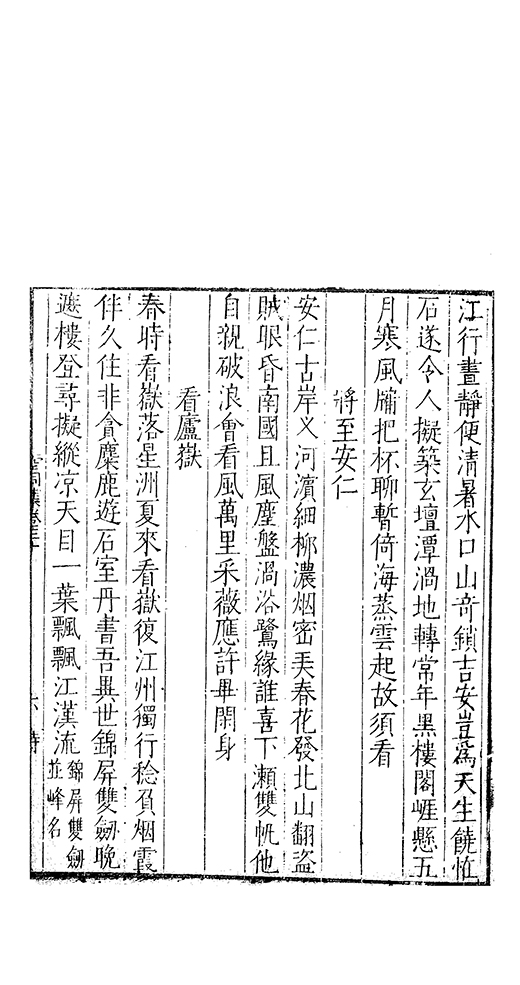 江行晝靜便清暑水口山奇鎖吉安豈爲天生饒怪
石遂令人擬築玄壇潭渦地轉常年黑樓閣崕懸五
月寒風牖把杯聊暫倚海蒸雲起故須看
將至安仁
安仁古岸义河濵細栁濃烟密芙春花發北山翻盗
賊眠昏南國且風塵盤渦浴鷺緣誰喜下瀬雙帆他
自親破浪會看風萬里采薇應許畢閑身
看廬嶽
春時看嶽落星洲夏來看嶽復江州獨行稔負烟霞
伴久住非貪麋鹿遊石室丹書吾異世錦屏雙劒晩
遰樓登尋擬縱凉天目一葉飄飄江漢流錦屏雙劒並峰名
六